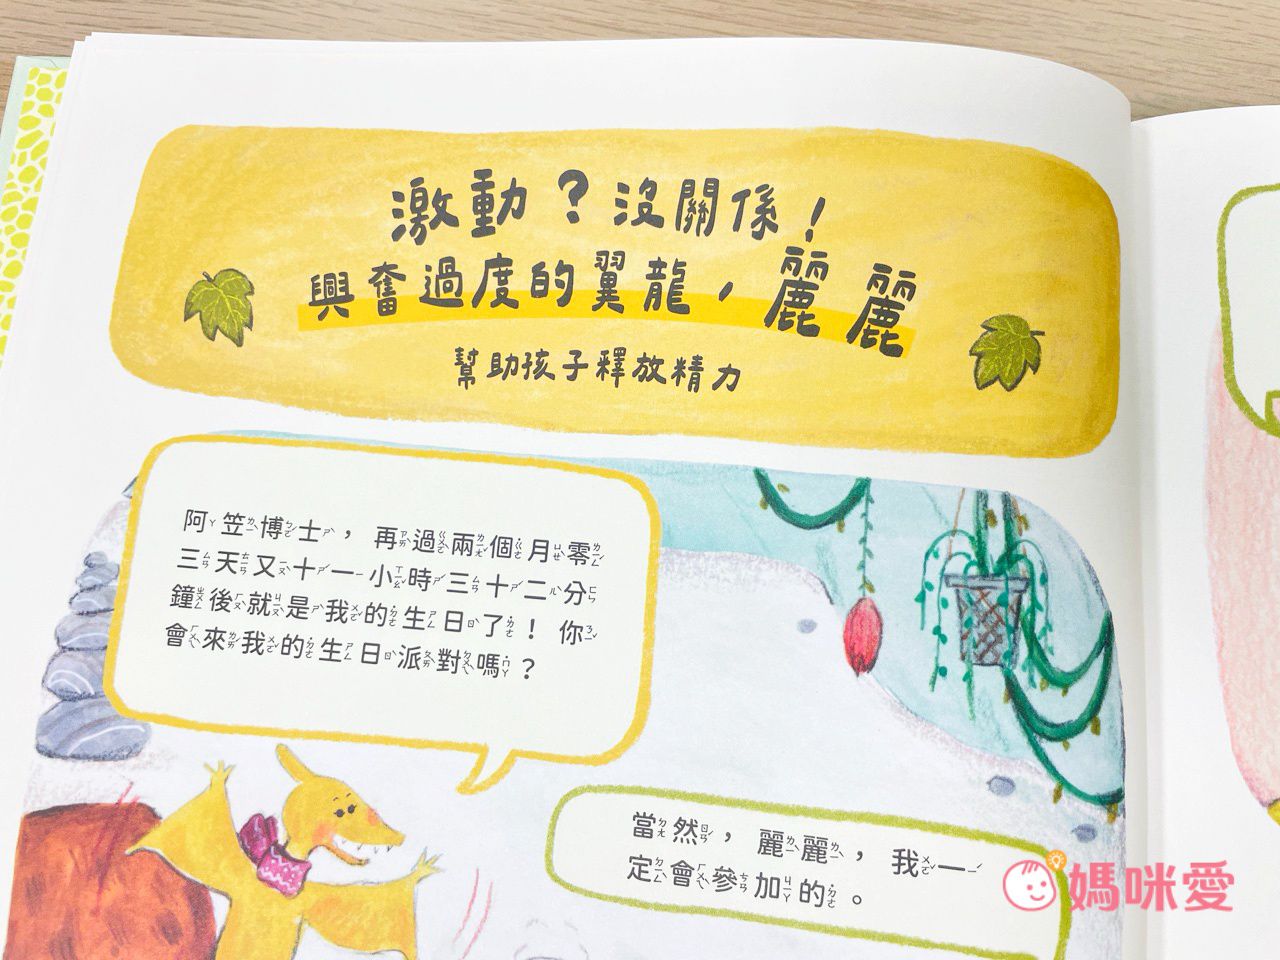 激動？沒關係！
興奮過度的翼龍，麗麗
幫助孩子釋放精力
阿笠博士，再過兩個月零
三天又十一小時三十二分
鐘後就是我的生日了！你
會來我的生日派對嗎？
當然，麗麗，我一
定會參加的。
媽咪愛